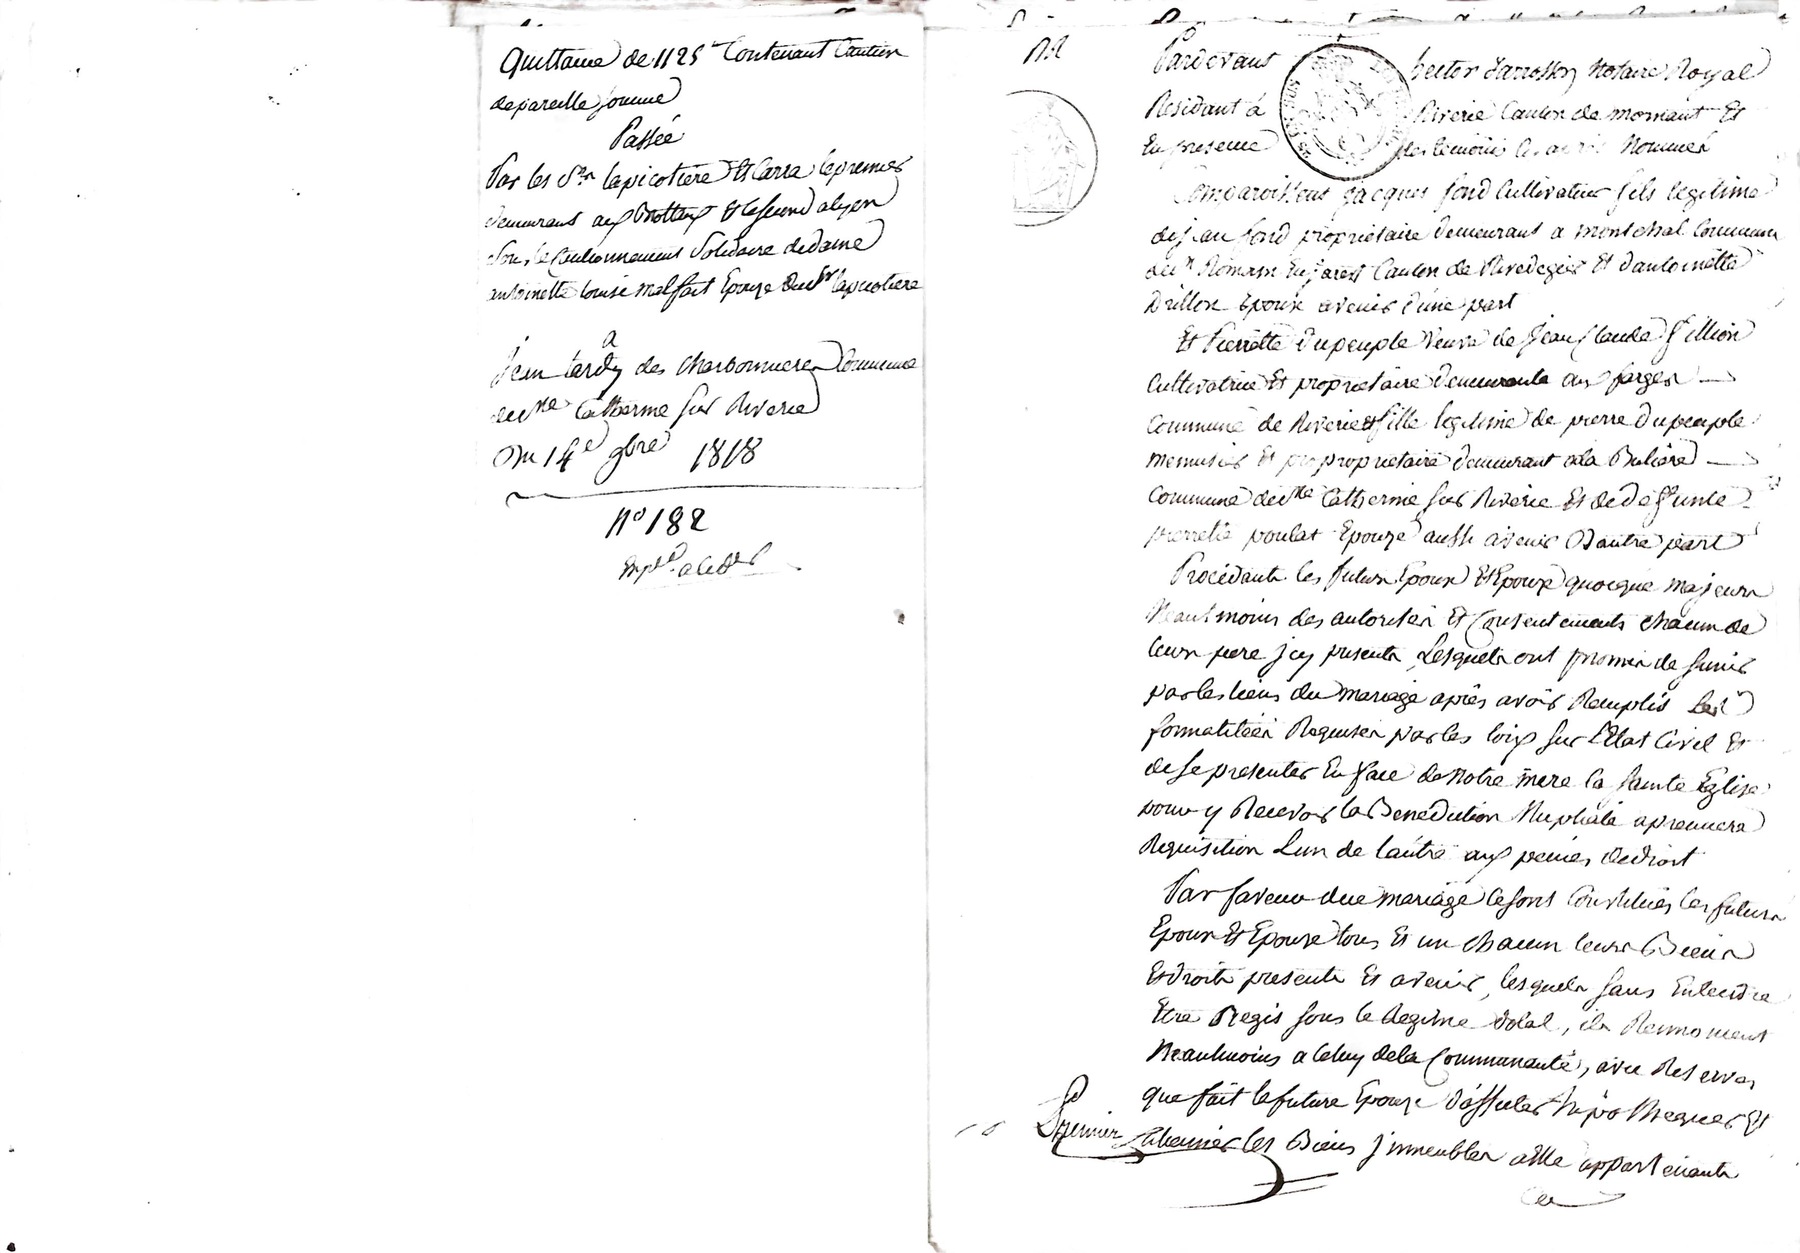 Quittance de 1125 Contenant Caution
de pareille somme
Passée
Par les Srs lapicotiere Et Carra le premier
demeurant aux Brottaux Et le second a lyon
Sous le Cautionnement Solidaire de dame
antoinette louise malfait Epouze du Sr lapicotiere
a
jean tardy des charbonnieres Commune
de ste Catherine sur Riverie
Du 14e 9bre 1818
No 182
Par devant hector Jarrosson Notaire Royal
Residant à Riverie Canton de mornant Et
En presence des temoins cy après Nommés
Comparoissent jacques fond Cultivateur fils legitime
de jean fond proprietaire demeurant a montchal Commune
de st Romain En jarest Canton de Rivedegier Et d'antoinette
Drillon Epoux avenir d'une part
Et Pierrette Dupeuple veuve de jean Claude Fillion
Cultivatrice Et proprietaire demeurante aux farges
Commune de Riverie et fille legitime de pierre Dupeuple
menusier Et proproprietaire demeurant a la Buliere
Commune de ste Catherine sur Riverie Et de deffunte
pierrette poulat Epouze aussi avenir D'autre part
Procédants les futurs Epoux Et Epouze quoeque majeurs
Neantmoins des autorités Et Consentements chacun de
leurs pere jcy presents, Lesquels ont promis de s'unir
par les liens du mariage après avoir Remplis Les
formalitées Requises par les loix sur l'Etat Civil Et
de se presenter En face de Notre mere la Sainte Eglise
pour y Recevoir la Benediction Nuptiale a premiere
Requisition L'un de l'autre aux peines de droit
Par faveur du mariage ce sont Constitués les futurs
Epoux Et Epouze tous Et un chacun leurs Biens
Et droits presents Et avenir, lesquels sans Entendre
Etre Regis sous le Regime dotal, ils Renoncent
Neantmoins a Celuy de la Communauté, avec Reserves
que fait la future Epouze d'affecter hypothequer Et
aliener les Biens jmmeubles a Elle appartenants
Premier